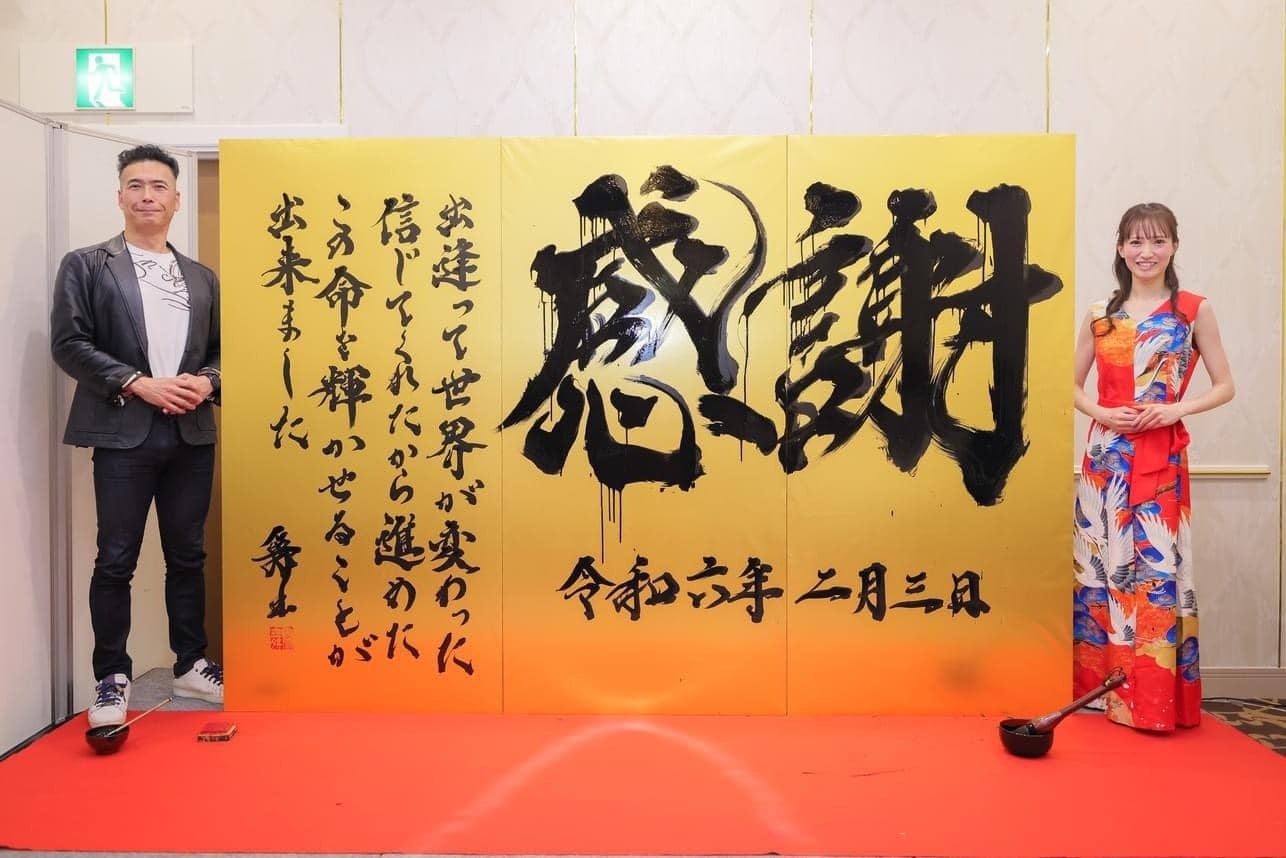 感謝
令和六年 二月三日
出逢って世界が変わった
信じてくれたから進めた
この命を輝かせることが
出来ました